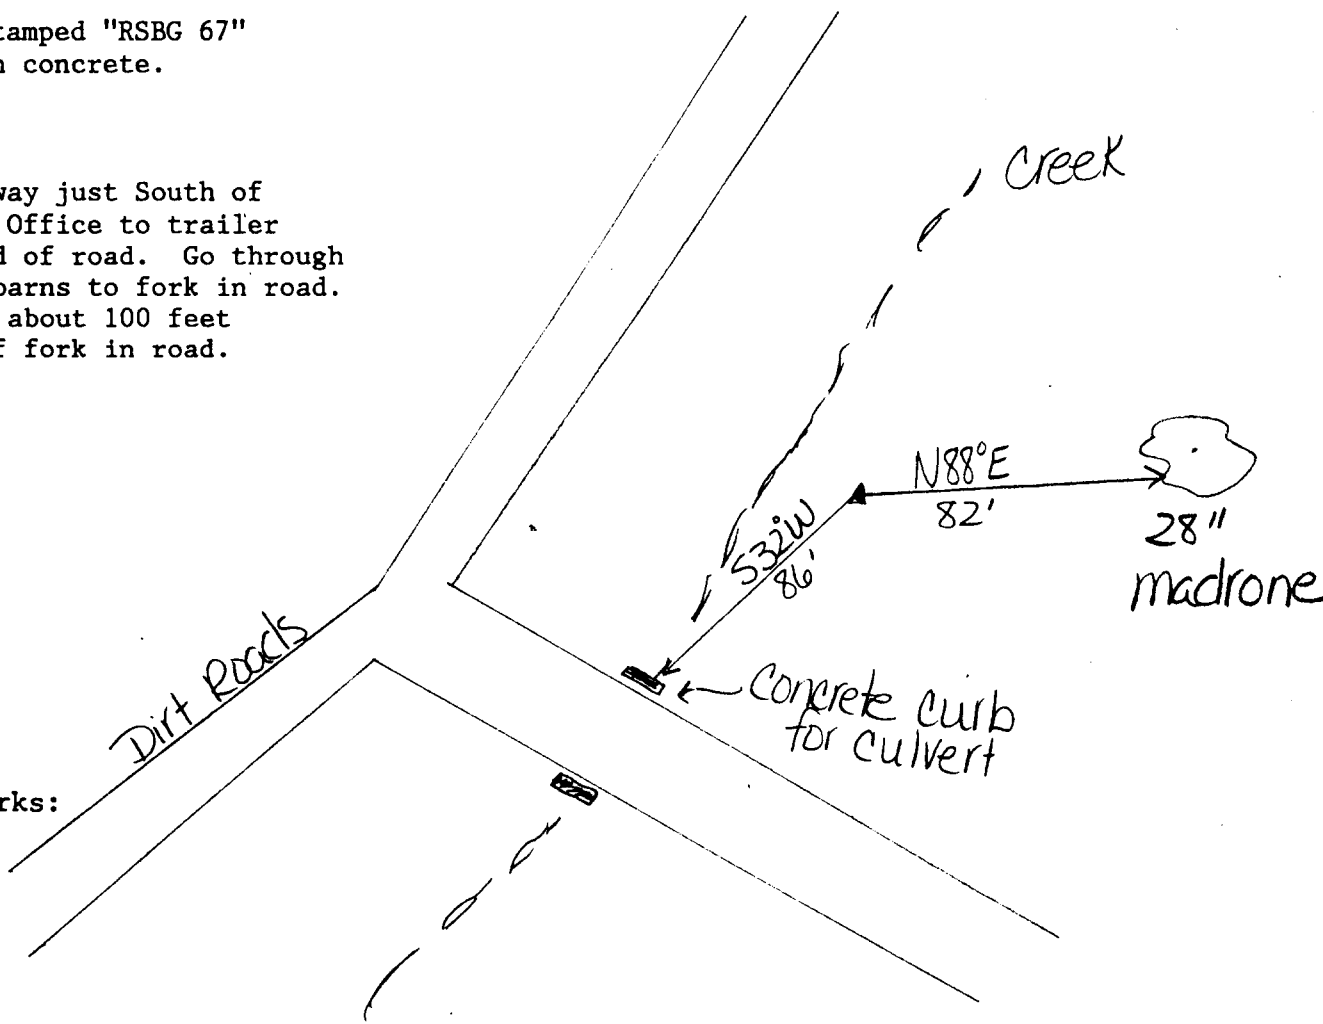 tamped "RSBG 67"
n concrete.
way just South of
Office to trailer
d of road. Go through
barns to fork in road.
about 100 feet
f fork in road.
Creek
N88°E
82'
28"
madrone
S32°W
86'
Dirt Roads
Concrete curb
for culvert
rks: